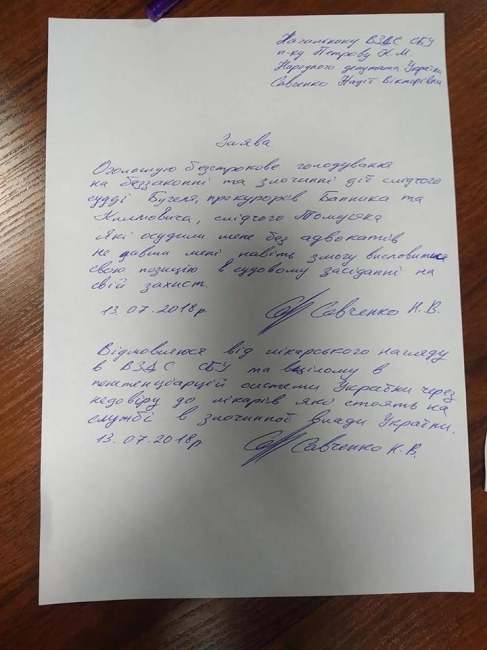 Начальнику ВЗДС СБУ
п-ку Петрову К.М.
Народного депутата України
Савченко Надії Вікторівни
Заява
Оголошую безстрокове голодування
на беззаконні та злочинні дії слідчого
судді Бугеля, прокурорів Банника та
Климовича, слідчого
які осудили мене без адвокатів
не давши мені навіть змогу висловити
свою позицію в судовому засіданні на
свій захист.
13.07.2018р. Савченко Н.В.
Відмовляюся від лікарського нагляду
в ВЗДС СБУ та вцілому в
пенітенціарній системи України через
недовіру до лікарів які стоять на
службі в злочинної влади України.
13.07.2018р Савченко Н.В.